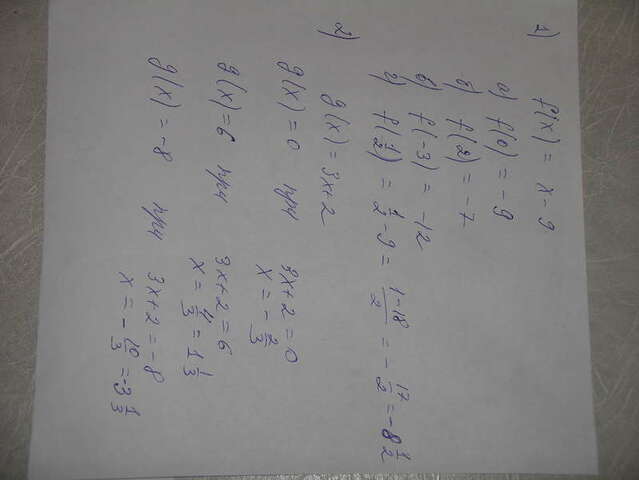 1) f(x) = x - 9
а) f(0) = -9
б) f(2) = -7
в) f(-3) = -12
г) f(1/2) = 1/2 - 9 = (1-18)/2 = -17/2 = -8 1/2
2) g(x) = 3x+2
g(x) = 0 при 3x+2 = 0
x = -2/3
g(x) = 6 при 3x+2 = 6
x = 4/3 = 1 1/3
g(x) = -8 при 3x+2 = -8
x = -10/3 = -3 1/3